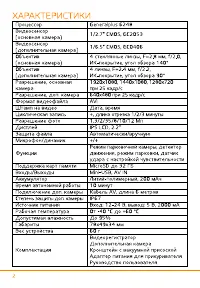 ХАРАКТЕРИСТИКИ
Процессор Generalplus 6248
Видеосенсор (основная камера) 1/2.7" CMOS, GC2053
Видеосенсор (дополнительная камера)
Объектив (основная камера) 4 стеклянные линзы, F=2,8 мм, f/2,0, ИК-покрытие, угол обзора 140°
Объектив (дополнительная камера) ИК-покрытие, угол обзора 90°
Разрешение, основная камера 1920x1080, 1440x1080, 1280x720 при 25 кадр/с
Разрешение, доп. камера 640x480 при 25 кадр/с
Формат видеофайла AVI
Штамп на видео Дата, время
Циклическая запись +, длина отрезка 1/2/3 минуты
Разрешение фото
Дисплей IPS LCD, 2.2"
Защита файла Автоматическая/вручную
Микрофон/динамик +/+
Функции Режим парковочной камеры, детектор движения, режим парковки, датчик удара с настройкой чувствительности
Поддержка карт памяти MicroSD до 32 Гб
Входы/Выходы MiniUSB, AV IN
Аккумулятор Литий-полимерный, 200 мАч
Время автономной работы 10 минут
Подключение доп. камеры Кабель AV, длина 6 метров
Степень защиты доп. камеры IP67
Источник питания Вход: 12-24 В, выход: 5 В, 2000 мА
Рабочая температура От -10 °C до +60 °C
Допустимая влажность До 95%
Габариты 79x49x34 мм
Вес устройства 60 г
Комплектация Видеорегистратор
Дополнительная камера
Кронштейн с вакуумной присоской
Адаптер питания для прикуривателя
Руководство пользователя